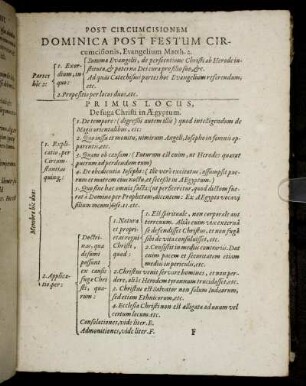 POST CIRCUMCISIONEM
DOMINICA POST FESTUM CIR-
cumcisionis, Evangelium Matth. 2.
Partes
hic 2:
1. Exor-
dium, in
quo:
Summa Evangelii, de persecutione Christi ab Herode in-
stituta, & paterna Dei cura pro filio suo, &c.
Ad quas Catechismi partes hoc Evangelium referendum,
etc.
2. Propositio per locus duos, etc.
PRIMUS LOCUS,
De fuga Christi in Ægyptum.
Membra hic duo:
1. Expli-
catio, per
Circum-
stantias
quinq;
1. De tempore: (digressis autem illis) quod intelligendum de
Magis orientalibus, etc.
2. Quo jussu et monitu, nimirum Angeli, Josepho in somnis ap-
parentis, etc.
3. Quam ob causam: (Futurum est enim, ut Herodes quærat
puerum ad perdendum eum)
4. De obedientia Josephi: (Ille verò excitatus assumpsit pu-
erum et matrem eius noctu, et secessit in Ægyptum.)
5. Quòd sic hæc omnia
à Domino per Prophetam, dicentem: Ex Ægypto vocavi
filium meum, id est, etc.
2. Applica-
tio per:
Doctri-
nas, quæ
desumi
possunt
ex causis
fugæ Chri-
sti, quo-
rum:
1. Natura
et propri-
etas regni
Christi,
quod:
1. Est spirituale, non corporale aut
terrenum. Aliàs enim vi externâ
se defendisset Christus, et non fugâ
sibi consuluisset, etc.
2. Consistit in mediis contrariis. Dat
enim pacem et securitatem etiam
mediis in periculis, etc.
2. Christus venit servare homines, et non per-
dere, alias Herodem tyrannum trucidasset, etc.
3. Christus est Salvator non solum Judæorum,
sed etiam Ethnicorum, etc.
4. Ecclesia Christi non est alligata ad unum vel
certum locum, etc.
Consolationes, vide liter. E.
Admonitiones, vide liter. F.
F